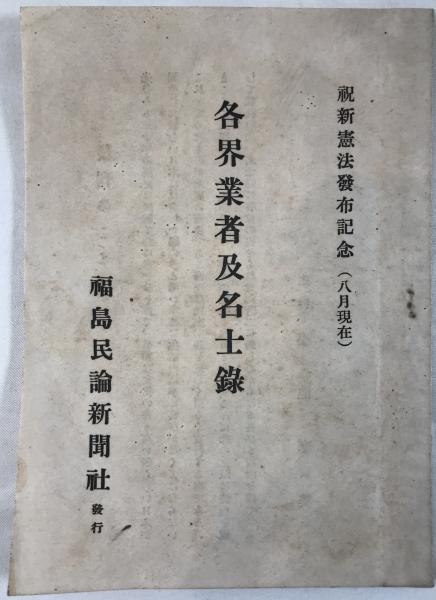 祝新憲法發布記念（八月現在）
各界業者及名士錄
福島民論新聞社 發行